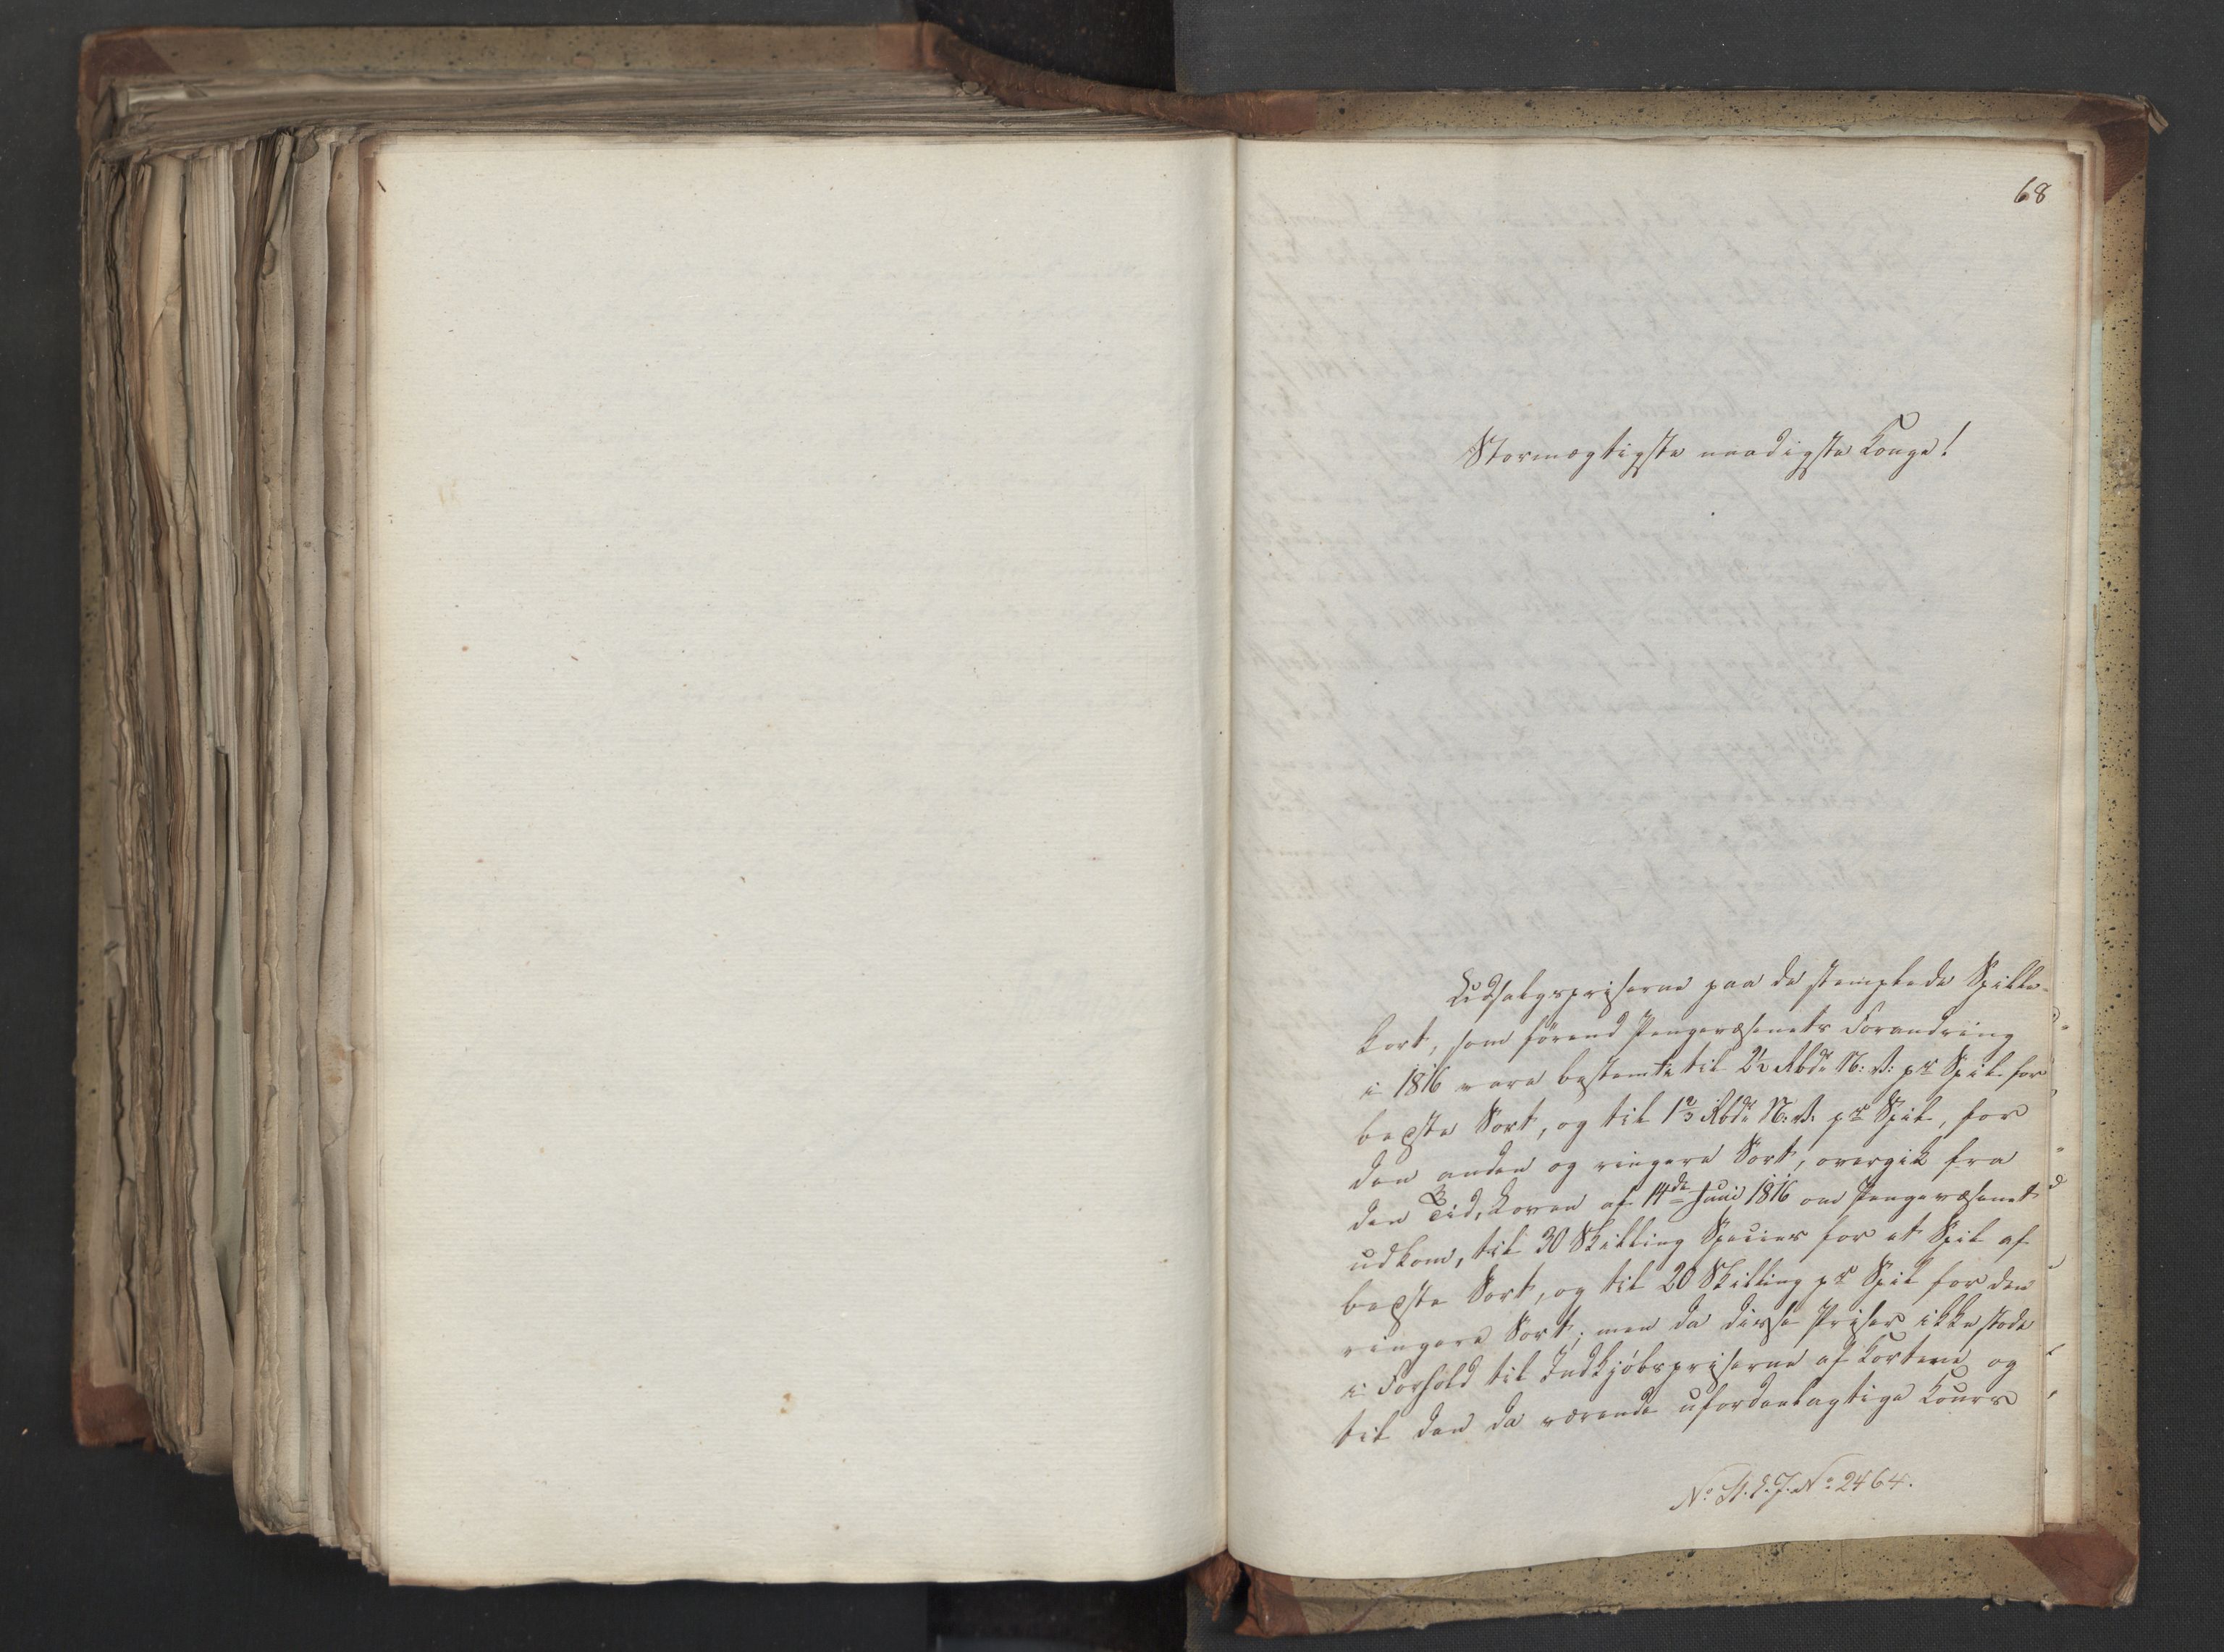 68
Stormægtigste naadigste Konge!
Udsalgspriserne paa de stemplede Spille-
kort, som förend Pengevæsenets Forandring
i 1816 vare bestemte til 2½ Rbdr N: V: pr Spil for
bedste Sort, og til 1⅔ Rbdr N: V: pr Spil, for
den anden og ringere Sort, overgik fra
den Tid, Loven af 14de Juni 1816 om Pengevæsenet
udkom, til 30 Skilling Species for et Spil af
bedste Sort, og til 20 Skilling pr Spil for den
ringere Sort; men da disse Priser ikke stode
i Forhold til Indkjöbspriserne af Kortene og
til den da værende ufordeelagtige Kours
No 2464.